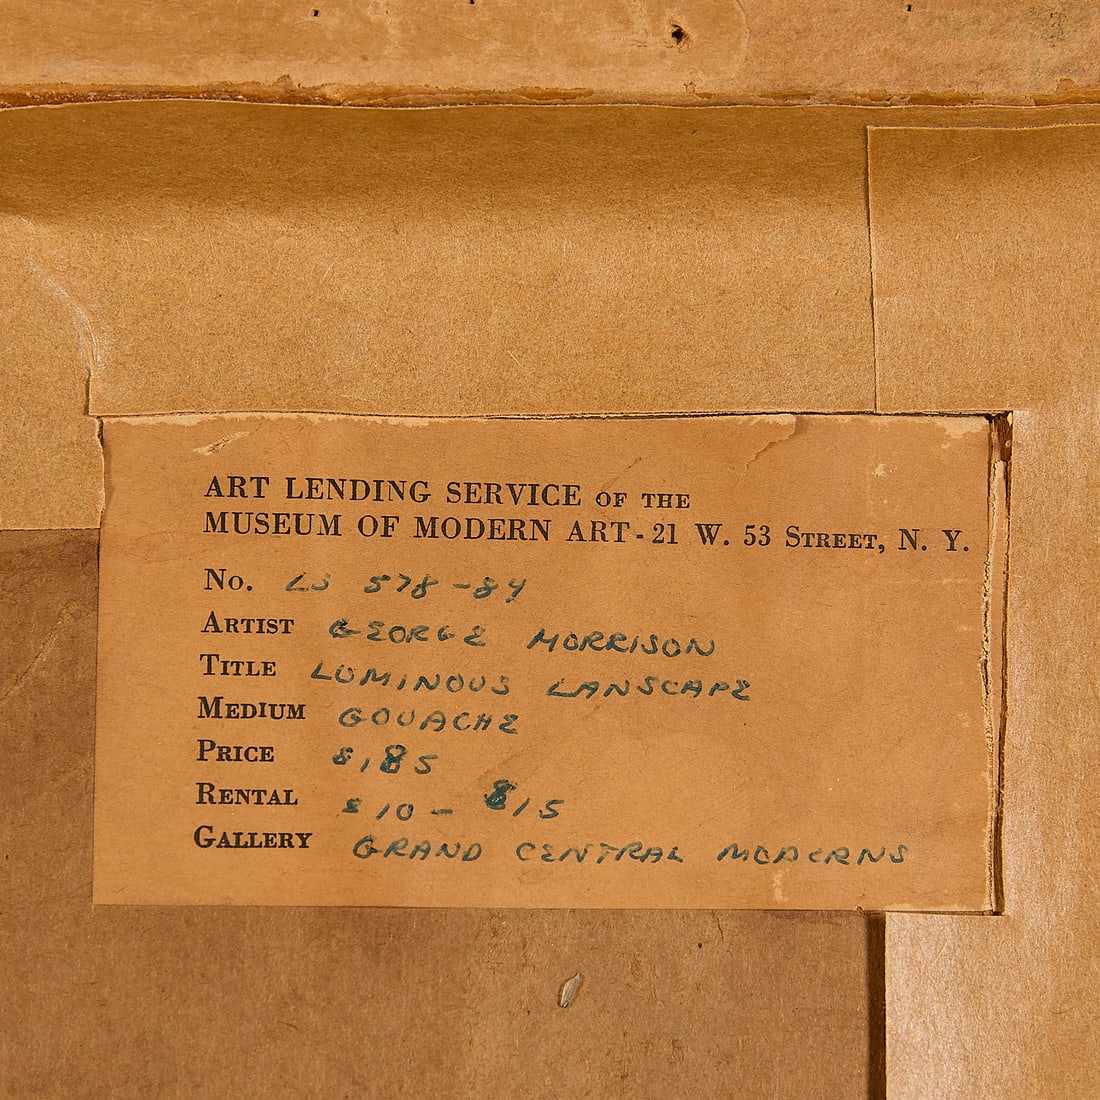 ART LENDING SERVICE OF THE
MUSEUM OF MODERN ART - 21 W. 53 STREET, N. Y.
No. LS 578-84
ARTIST GEORGE MORRISON
TITLE LUMINOUS LANSCAPE
MEDIUM GOUACHE
PRICE $185
RENTAL $10 - $15
GALLERY GRAND CENTRAL MODERNS